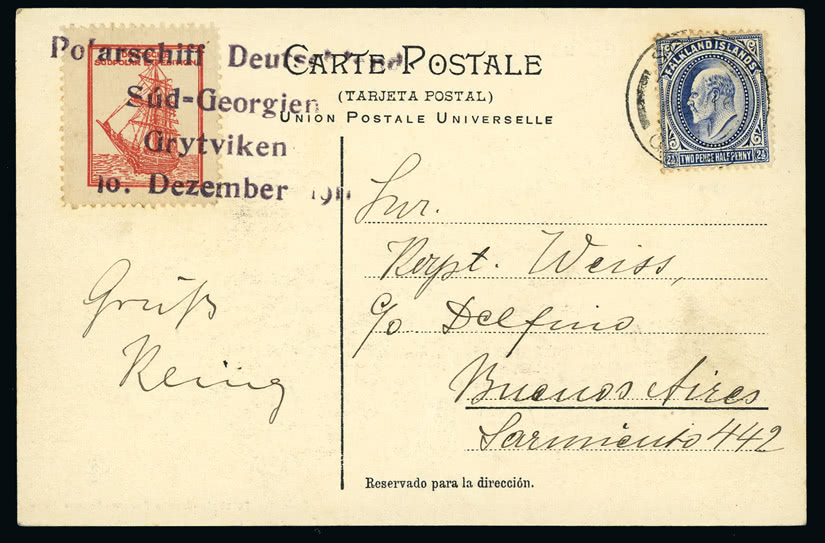 Polarschiff Deutschland
Süd-Georgien
Grytviken
10. Dezember 1911
DEUTSCHE
SÜDPOLAR EXPEDITION
CARTE POSTALE
(TARJETA POSTAL)
UNION POSTALE UNIVERSELLE
FALKLAND ISLANDS
2½ TWO PENCE HALF PENNY 2½
Kapt. Weiss,
c/o Delfino
Buenos Aires
Sarmiento 442
Gruß
Reservado para la dirección.